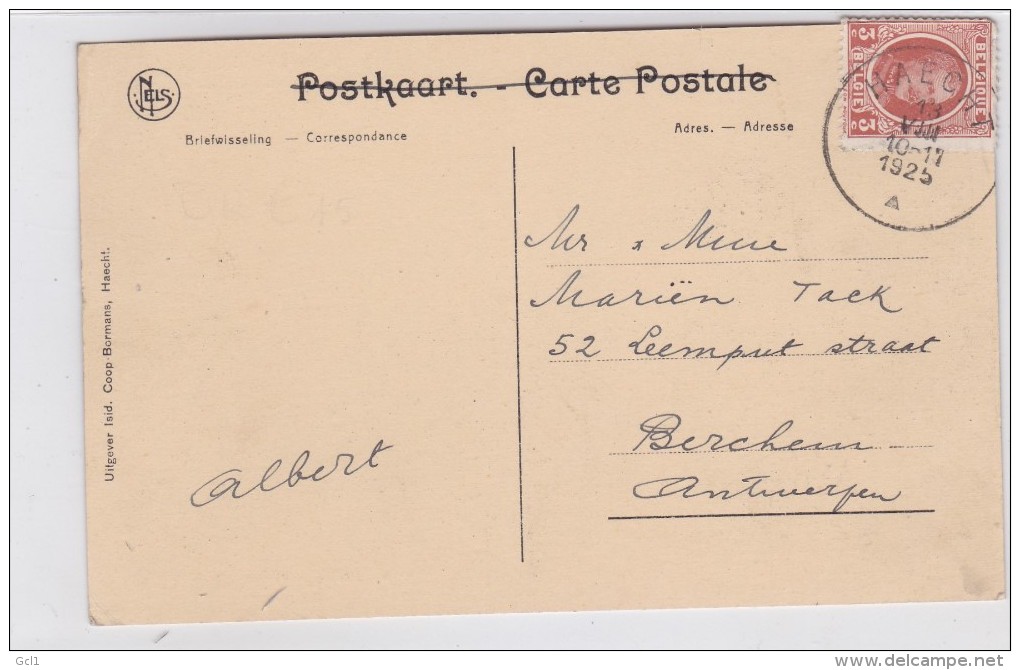 NELS
Postkaart. - Carte Postale
Briefwisseling — Correspondance
Adres. — Adresse
BELGIQUE
BELGIË
3 C 3 C
HAECHT
13
VIII
10-11
1925
A
Mr & Mme
Mariën Tack
52 Leemput straat
Berchem
Antwerpen
Albert
Uitgever Isid. Coop-Bormans, Haecht.
Gcl1
www.delcampe.net